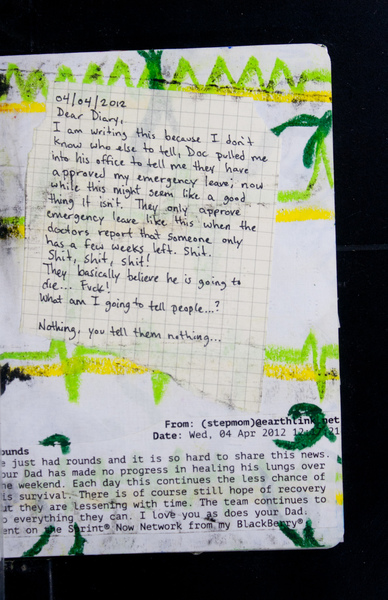 04/04/2012
Dear Diary,
I am writing this because I don't
know who else to tell, Doc pulled me
into his office to tell me they have
approved my emergency leave; now
while this might seem like a good
thing it isn't. They only approve
emergency leave like this when the
doctors report that someone only
has a few weeks left. Shit.
Shit, shit, shit!
They basically believe he is going to
die.... Fuck!
What am I going to tell people...?
Nothing, you tell them nothing...
From: (stepmom)@earthlink.net
Date: Wed, 04 Apr 2012
ounds
e just had rounds and it is so hard to share this news.
our Dad has made no progress in healing his lungs over
he weekend. Each day this continues the less chance of
is survival. There is of course still hope of recovery
ut they are lessening with time. The team continues to
o everything they can. I love you as does your Dad.
ent on the Sprint® Now Network from my BlackBerry®